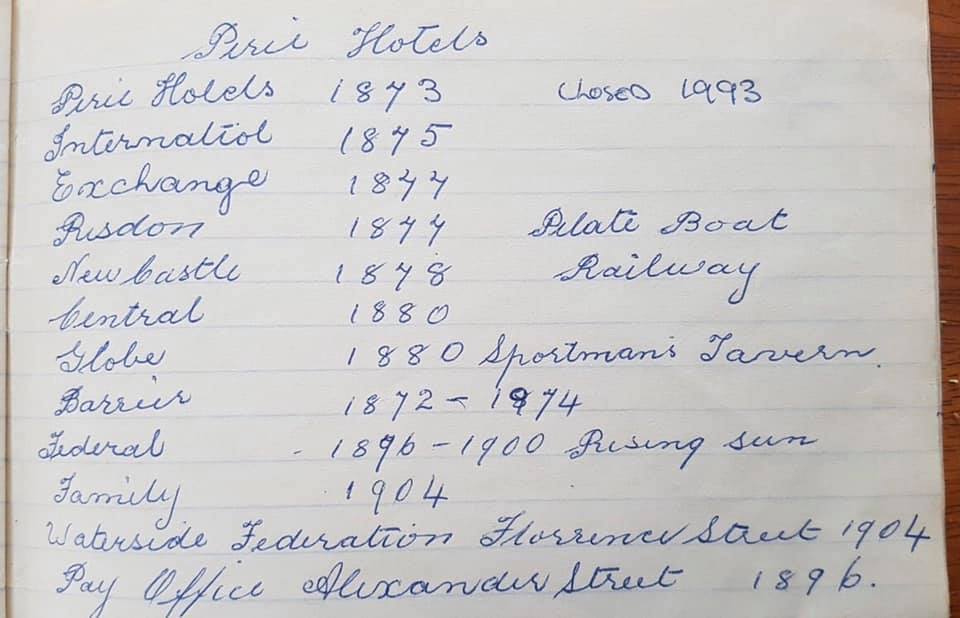 Pirie Hotels
Pirie Hotels 1873 Closed 1993
Internatiol 1875
Exchange 1877
Risdon 1877 Pilate Boat
Newcastle 1878 Railway
Central 1880
Globe 1880 Sportman's Tavern.
Barrier 1872 - 1974
Federal - 1896 - 1900 Rising Sun
Family 1904
Waterside Federation Florrence Street 1904
Pay Office Alexander Street 1896.